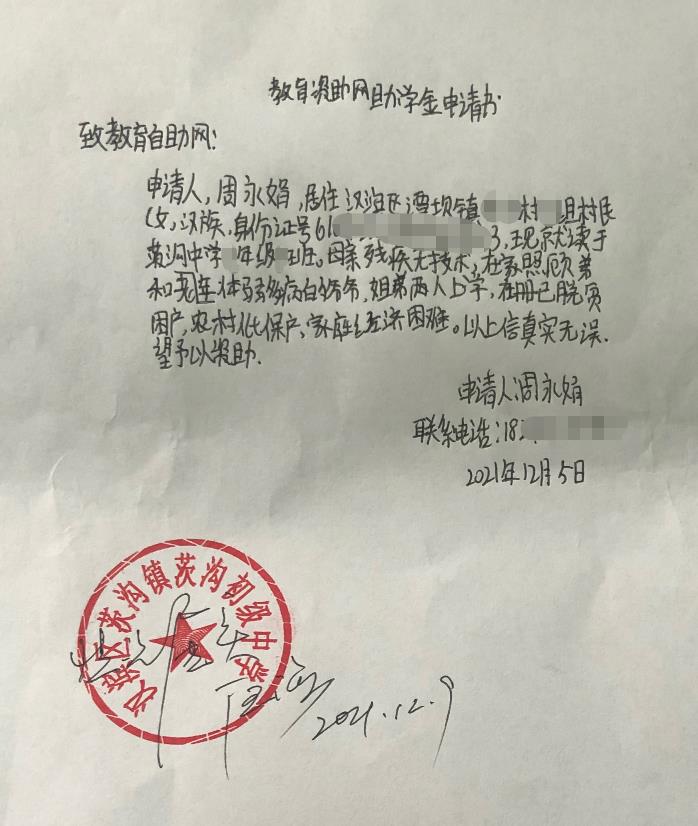 教育资助网助学金申请书
致教育自助网:
申请人,周永娟,居住汉滨区谭坝镇 村 组村民
女,汉族,身份证号61 3,现就读于
茨沟中学 年级 班。母亲残疾无技术,在家照顾弟
和年体弱多病的爷爷,姐弟两人上学,在册已脱贫
困户,农村低保户,家庭经济困难。以上信真实无误.
望予以资助.
申请人:周永娟
联系电话:182
2021年12月5日
汉滨区茨沟镇茨沟初级中学
2021.12.9